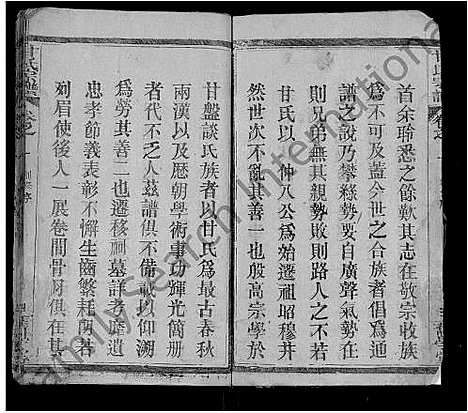 首余瑜悉之餘歎其志在敬宗收族
爲不可及蓋今世之合族者倡爲通
譜之說乃攀緣勢要自廣聲氣勢在
則兄弟無其親勢敗則路人之不若
甘氏以一仲八公爲始遷祖昭穆井
然世次不亂其善一也般高宗學於
甘盤談氏族者以甘氏爲最古春秋
兩漢以及歷朝學術事功輝光簡册
者代不乏人茲譜俱不備載以仰溯
爲勞其善二也遷移祠墓詳考靡遺
忠孝節義表彰不懈生齒繁耗兩若
列眉使後人一展卷間骨月俱在其
甘氏宗譜
卷之一
FamilySearch International